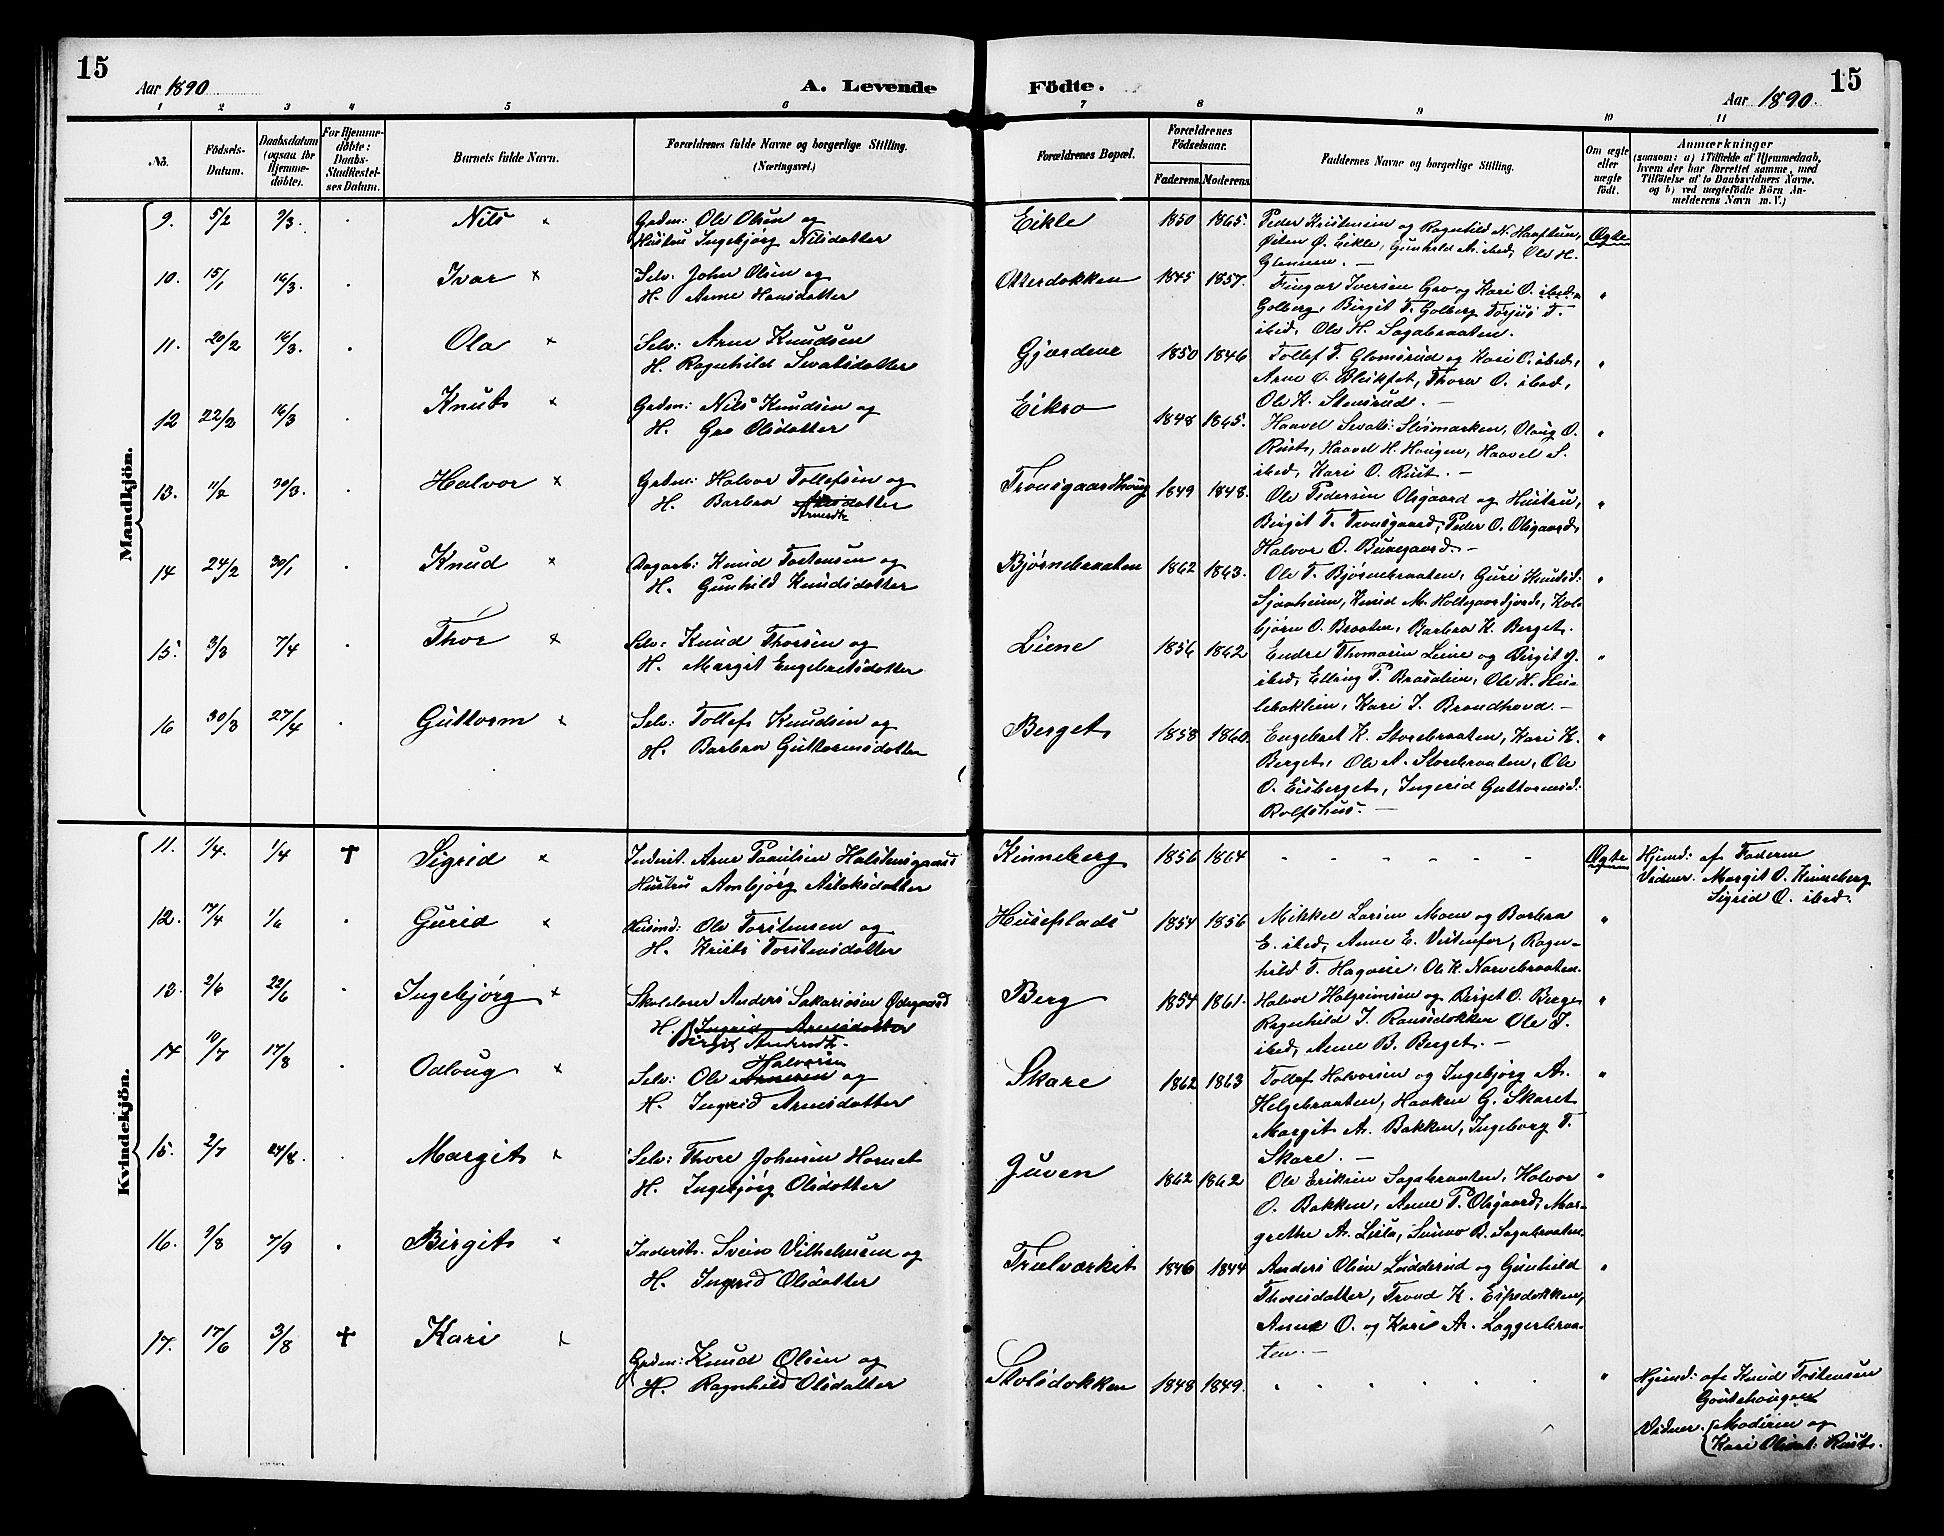 15
Aar 1890
A. Levende
Födte.
Aar 1890.
15
1 2 3 4 5 6 7 8 9 10 11
No.
Födsels-
Datum.
Daabsdatum
(ogsaa for
Hjemme-
döbte).
For Hjemme-
döbte:
Daabs-
Stadfæstel-
ses Datum.
Barnets fulde Navn.
Forældrenes fulde Navne og borgerlige Stilling.
(Næringsvei.)
Forældrenes Bopæl.
Forældrenes
Födselsaar.
Faderens. Moderens.
Faddernes Navne og borgerlige Stilling.
Om ægte
eller
uægte
födt.
Anmærkninger
(saasom: a) i Tilfælde af Hjemmedaab,
hvem der har forrettet samme, med
Tilföielse af to Daabsvidners Navne,
og b) ved uægtefödte Börn An-
melderens Navn m. V.)
Mandkjön.
9. 5/2 9/3. Nils
Grdm: Ole Olsen og
Hustru Ingebjørg Nilsdatter
Eikle 1850 1865.
Peder Kristensen og Ragnhild N. Haaftun,
Østen Ø. Eikle, Gunhild A. ibed, Ole H.
Glennen. —
Ægte
10. 15/1 16/3. Ivar
Selv: John Olsen og
H. Anne Hansdatter
Otterdokken 1845 1857.
Fingar Iversen Gro og Kari O. ibed
Golberg, Birgit T. Golberg Torjus T.
ibed, Ole H. Sagabraaten.
11. 20/2 16/3. Ola
Selv: Arne Knudsen
H. Ragnhild Sevatsdatter
Gjærdene 1850 1846
Tollef T. Glomsrud og Kari O. ibed,
Arne O. Bleikfet, Thora O. ibed,
Ole K. Stensrud. —
12 22/2 16/3 Knut
Grdm: Nils Knudsen og
H. Gro Olsdatter
Eikro 1848 1865.
Haavel Sevats: Slismarken, Olaug O.
Rust, Haavel H. Haugen, Haavel S.
ibed, Kari O. Rust. —
13. 11/2 30/3. Halvor
Grdm: Halvor Tollefsen og
H. Barbra Olsdatter
Arnesdt.
Tronsgaardhaug 1849 1848.
Ole Pedersen Olsgaard og Hustru,
Birgit T. Tronsgaard, Peder O. Olsgaard,
Halvor O. Bunegaard. —
14 24/2 30/1 Knud
Dagarb: Knud Torstensen og
H. Gunhild Knudsdatter
Bjørnebraaten 1862 1863.
Ole T. Bjørnebraaten, Guri Knudsd.
Sjaaheim, Knud M. Holtegaardjorde, Kol-
bjørn O. Braaten, Barbra K. Berget.
15. 3/3 7/4 Thor
Selv: Knud Thorsen og
H. Margit Engebretsdatter
Liene 1856 1862
Endre Thomasen Leine og Birgit O.
ibed, Elling T. Braaalien, Ole H. Hus-
lebaklien, Kari I. Brandhovd. —
16 30/3 27/4 Guttorm
Selv: Tollef Knudsen og
H. Barbra Guttormsdatter
Berget 1858 1860.
Engebret K. Storebraaten, Kari K.
Berget, Ole A. Storebraaten, Ole
O. Eisberget, Ingerid Guttormsd:
Rolfshus. —
Kvindekjön.
11. 1/4. 1/4 † Sigrid
Inderst. Arne Paaulsen Halstensgaard
Hustru Ambjørg Aslaksdatter
Kinneberg 1856 1864
" " " " " "
Ægte
Hjemd: af Faderen
Vidner. Margit O. Kinneberg
Sigrid O. ibed.
12. 7/4 1/6 Gurid
Husmd: Ole Torstensen og
H. Kristi Torstensdatter
Huseplads 1854 1856
Mikkel Larsen Moen og Barbra
E. ibed, Anne E. Vestenfor, Ragn-
hild T. Hagaeie, Ole K. Narvebraaten.
13. 2/6 22/6 Ingebjørg
Skolelærer Anders Sakariasen Ødegaard
H. Ingrid Arnesdatter
Birgit Andersdt.
Berg 1854 1861.
Halvor Halgrimsen og Birget O. Berge
Ragnhild I. Ransedokken Ole I.
ibed, Anne B. Berget. —
14 10/7 17/8 Odlaug
Halvorsen
Selv: Ole Arnesen og
H. Ingrid Arnesdatter
Skare 1862 1863
Tollef Halvorsen og Ingebjørg A.
Helgebraaten, Haaken G. Skaret
Margit A. Bakken, Ingeborg T.
Skare. —
15. 2/7 24/8. Margit
Selv: Thore Johnsen Hornet
H. Ingebjørg Olsdatter
Juven 1862 1862
Ole Eriksen Sagabraaten, Halvor
O. Bakken, Anne P. Olsgaard, Mar-
grethe A. Lisla, Sunnø B. Sagabraaten.
16. 9/8 7/9 Birgit
Inderst. Svein Vilhelmsen og
H. Ingrid Olsdatter
Trælværket 1846 1844
Anders Olsen Lødderud og Gunhild
Thorsdatter, Trond K. Espedokken,
Anne O. og Kari A. Laggerbraa-
ten. —
17. 17/6 3/8 † Kari
Grdm: Knud Olsen og
H. Ragnhild Olsdatter
Stolsdokken 1848 1849.
" " " " " "
Hjemd: af Knud Torstensen
Goutehaugen
Vidner. Moderen og
Kari Olsdt: Rust.